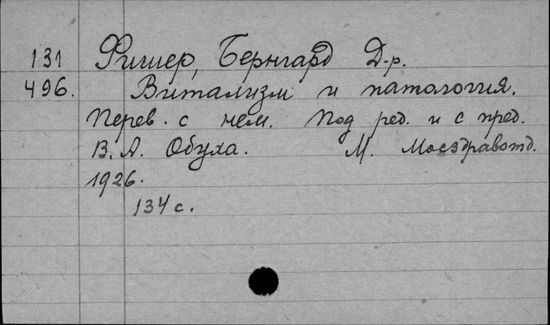 131 Фишер, Бернгард Д-р.
496. Витализм и патология.
Перев. с нем. Под ред. и с пред.
В. А. Обуха. М. Мосздравотд.
1926.
134 с.